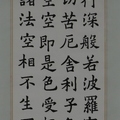 行深般若波羅
切苦厄舍利子色
空空即是色受想
諸法空相不生不